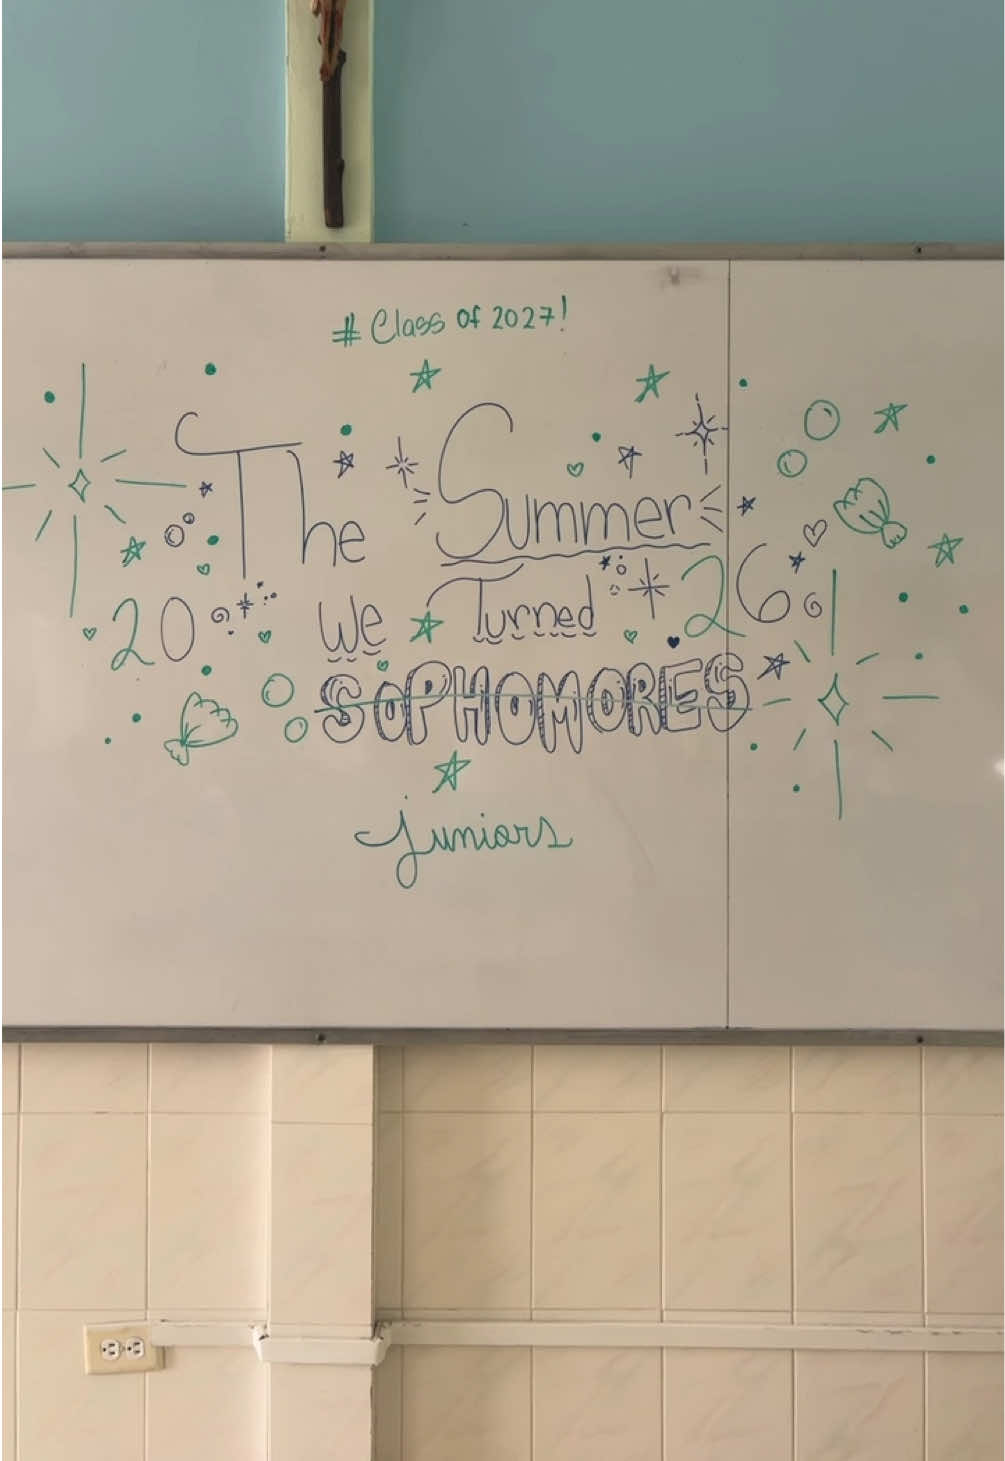 # Class of 2027!
The Summer
20 We Turned 26
SOPHOMORES
juniors